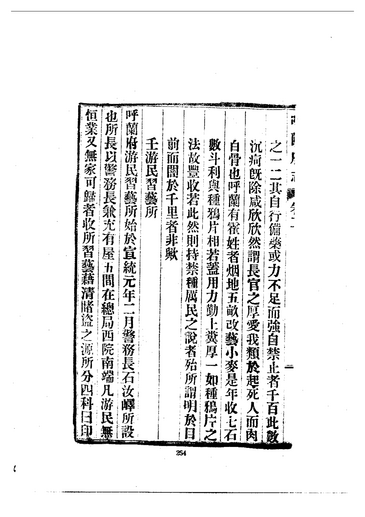 之一二其自行備藥或力不足而強自禁止者千百此數
沉痾既除咸欣欣然謂長官之厚愛我類於起死人而肉
白骨也呼蘭有崔姓者烟地五畝改藝小麥是年收七石
數斗利與種鴉片相若蓋用力勤上糞厚一如種鴉片之
法故豐收若此然則持禁種厲民之說者殆所謂明於目
前而闇於千里者非歟
壬游民習藝所
呼蘭府游民習藝所始於宣統元年二月警務長石汝嶧所設
也所長以警務長兼充有屋五間在總局西院南端凡游民無
恒業又無家可歸者收所習藝藉清賭盜之源所分四科曰印
254